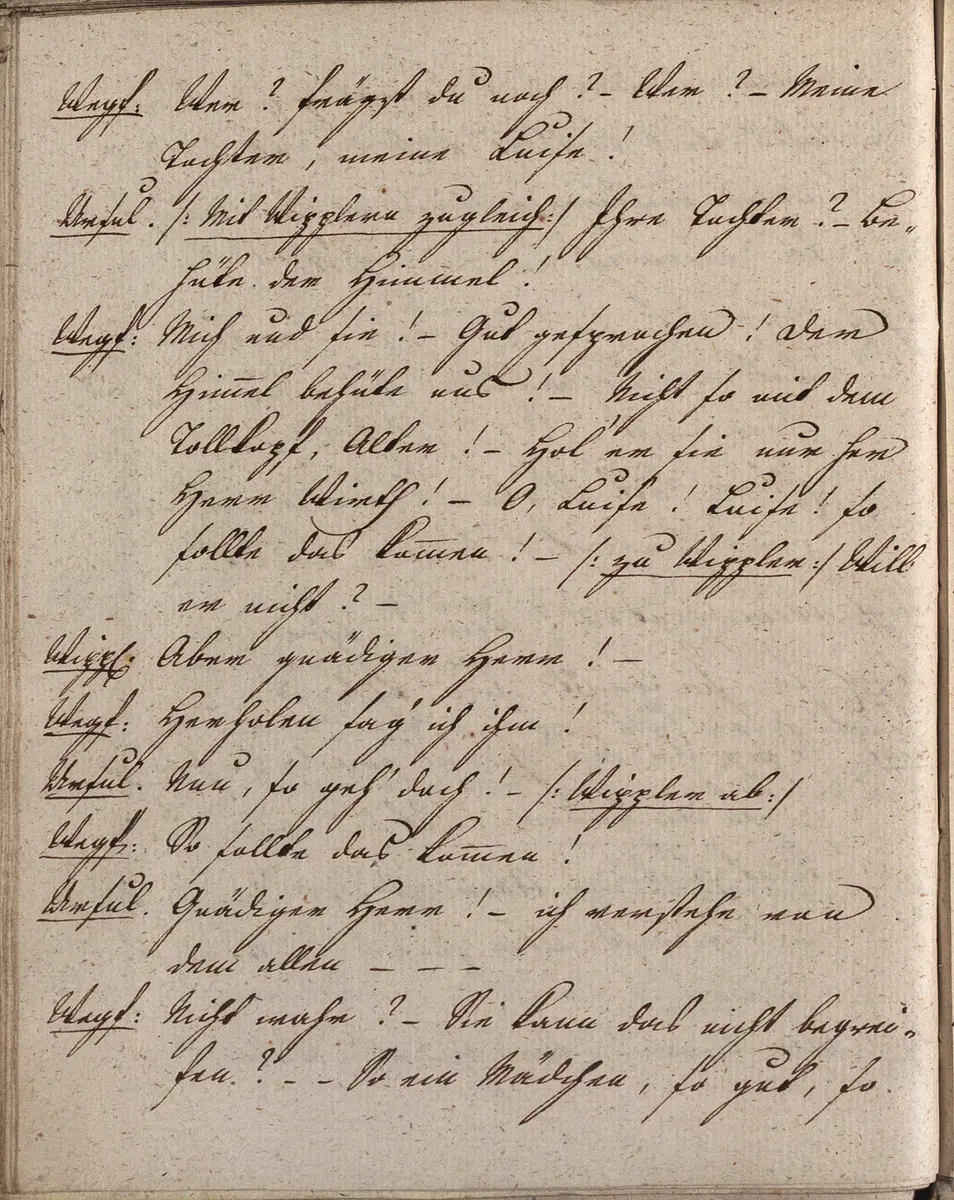 Wegf: Wer? frägst du noch? – Wer? – Meine
Tochter, meine Luise!
Ursul. /: Mit Wipplern zugleich :/ Ihre Tochter? – Be-
hüte der Himmel!
Wegf: Mich und sie! – Gut gesprochen! Der
Him̅el behüte uns! – Nicht so mit dem
Tollkopf, Alter! – Hol' er sie nur her
Herr Wirth! – O, Luise! Luise! so
sollte das kom̅en! – /: zu Wippler :/ Will
er nicht? –
Wippl. Aber gnädiger Herr! –
Wegf: Herholen sag' ich ihm!
Ursul. Nun, so geh' doch! – /: Wippler ab :/
Wegf: So sollte das kom̅en!
Ursul. Gnädiger Herr! – ich verstehe von
dem allen – – –
Wegf: Nicht wahr? – Sie kann das nicht begrei-
fen? – – So ein Mädchen, so gut, so